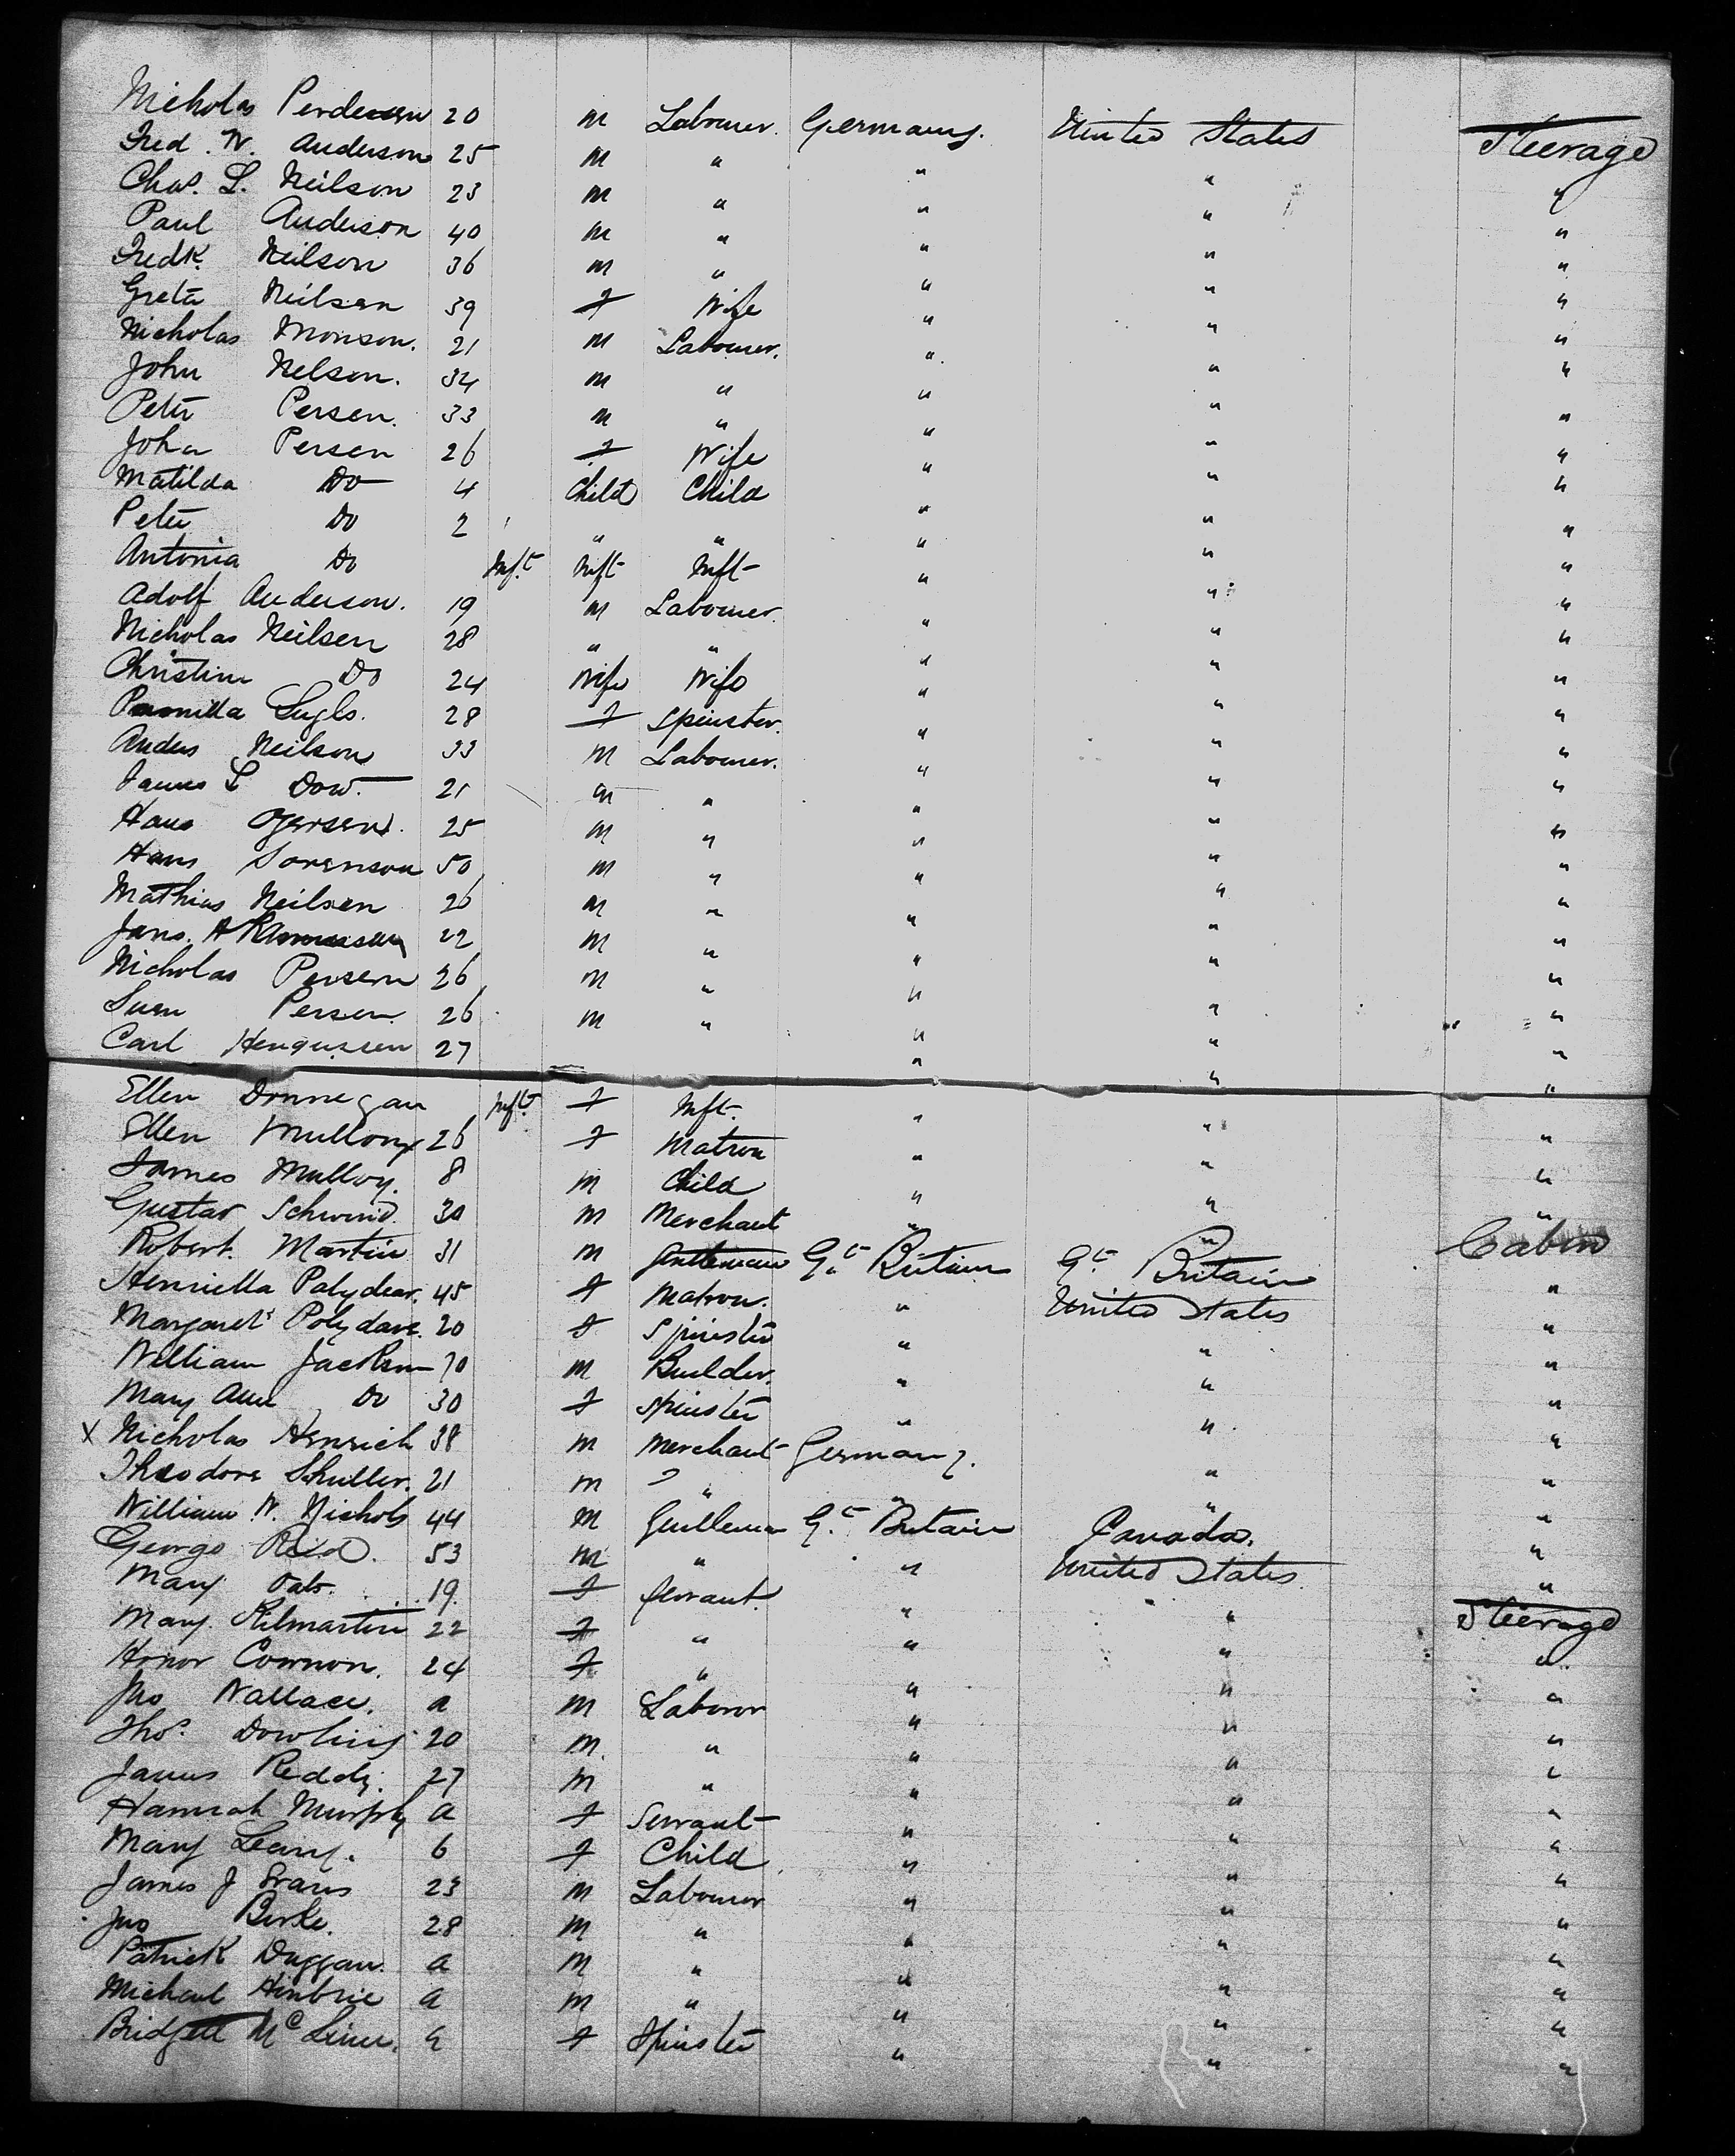 Nicholas Pendersen 20 m Labourer. Germany. United States Steerage
Fred. W. Anderson 25 m " " " "
Chas. L. Neilson 23 m " " " "
Paul Anderson 40 m " " " "
Fredk. Neilson 36 m " " " "
Greta Neilsen 39 f Wife " " "
Nicholas Monson. 21 m Labourer. " " "
John Nelson. 34 m " " " "
Peter Persen. 33 m " " " "
Joha Persen 26 f Wife " " "
Matilda Do 4 Child Child " " "
Peter Do 2 " " " " "
Antonia Do Inft. Inft Inft " " "
Adolf Anderson. 19 m Labourer. " " "
Nicholas Neilsen 28 " " " " "
Christine Do 24 Wife Wife " " "
28 f Spinster. " " "
Anders Neilson 33 m Labourer. " " "
James L Dow. 21 m " " " "
Hans 25 m " " " "
Hans Sorenson 50 m " " " "
Mathias Neilsen 26 m " " " "
Jans. A Rasmussen 22 m " " " "
Nicholas Persern 26 m " " " "
Suen Persen. 26 m " " " "
Carl 27 " " "
Ellen Donnegan Inft. f Inft. " " "
Ellen Mullony 26 f Matron " " "
James Mulloy. 8 m Child " " "
Gustav Schwind. 30 m Merchant " " Cabin
Robert. Martin 31 m Gentleman Gt. Britain Gt. Britain "
Henrietta Polydear. 45 f Matron. " United States "
Margaret Polydare. 20 f Spinster " " "
William Jackson 70 m Builder. " " "
Mary Ann Do 30 f Spinster " " "
x Nicholas Henrich 38 m Merchant Germany. " "
Theodore Schuller. 21 m " " " "
William W. Nichols 44 m Gentleman Gt. Britain Canada. "
George Reid. 53 m " " United States "
Mary 19. f Servant. " " Steerage
Mary Kilmartin 22 f " " " "
Honor Connon. 24 f " " " "
Jno Wallace. a m Laboror " " "
Thos. Dowling 20 m. " " " "
James Reddy. 27 m " " " "
Hannah Murphy a f Servant " " "
Mary Leary. 6 f Child " " "
James J Evans 23 m Labourer " " "
Jno Berke. 28 m " " " "
Patrick Duggan. a m " " " "
Michael a m " " " "
Bridgett Mc a f Spinster " " "